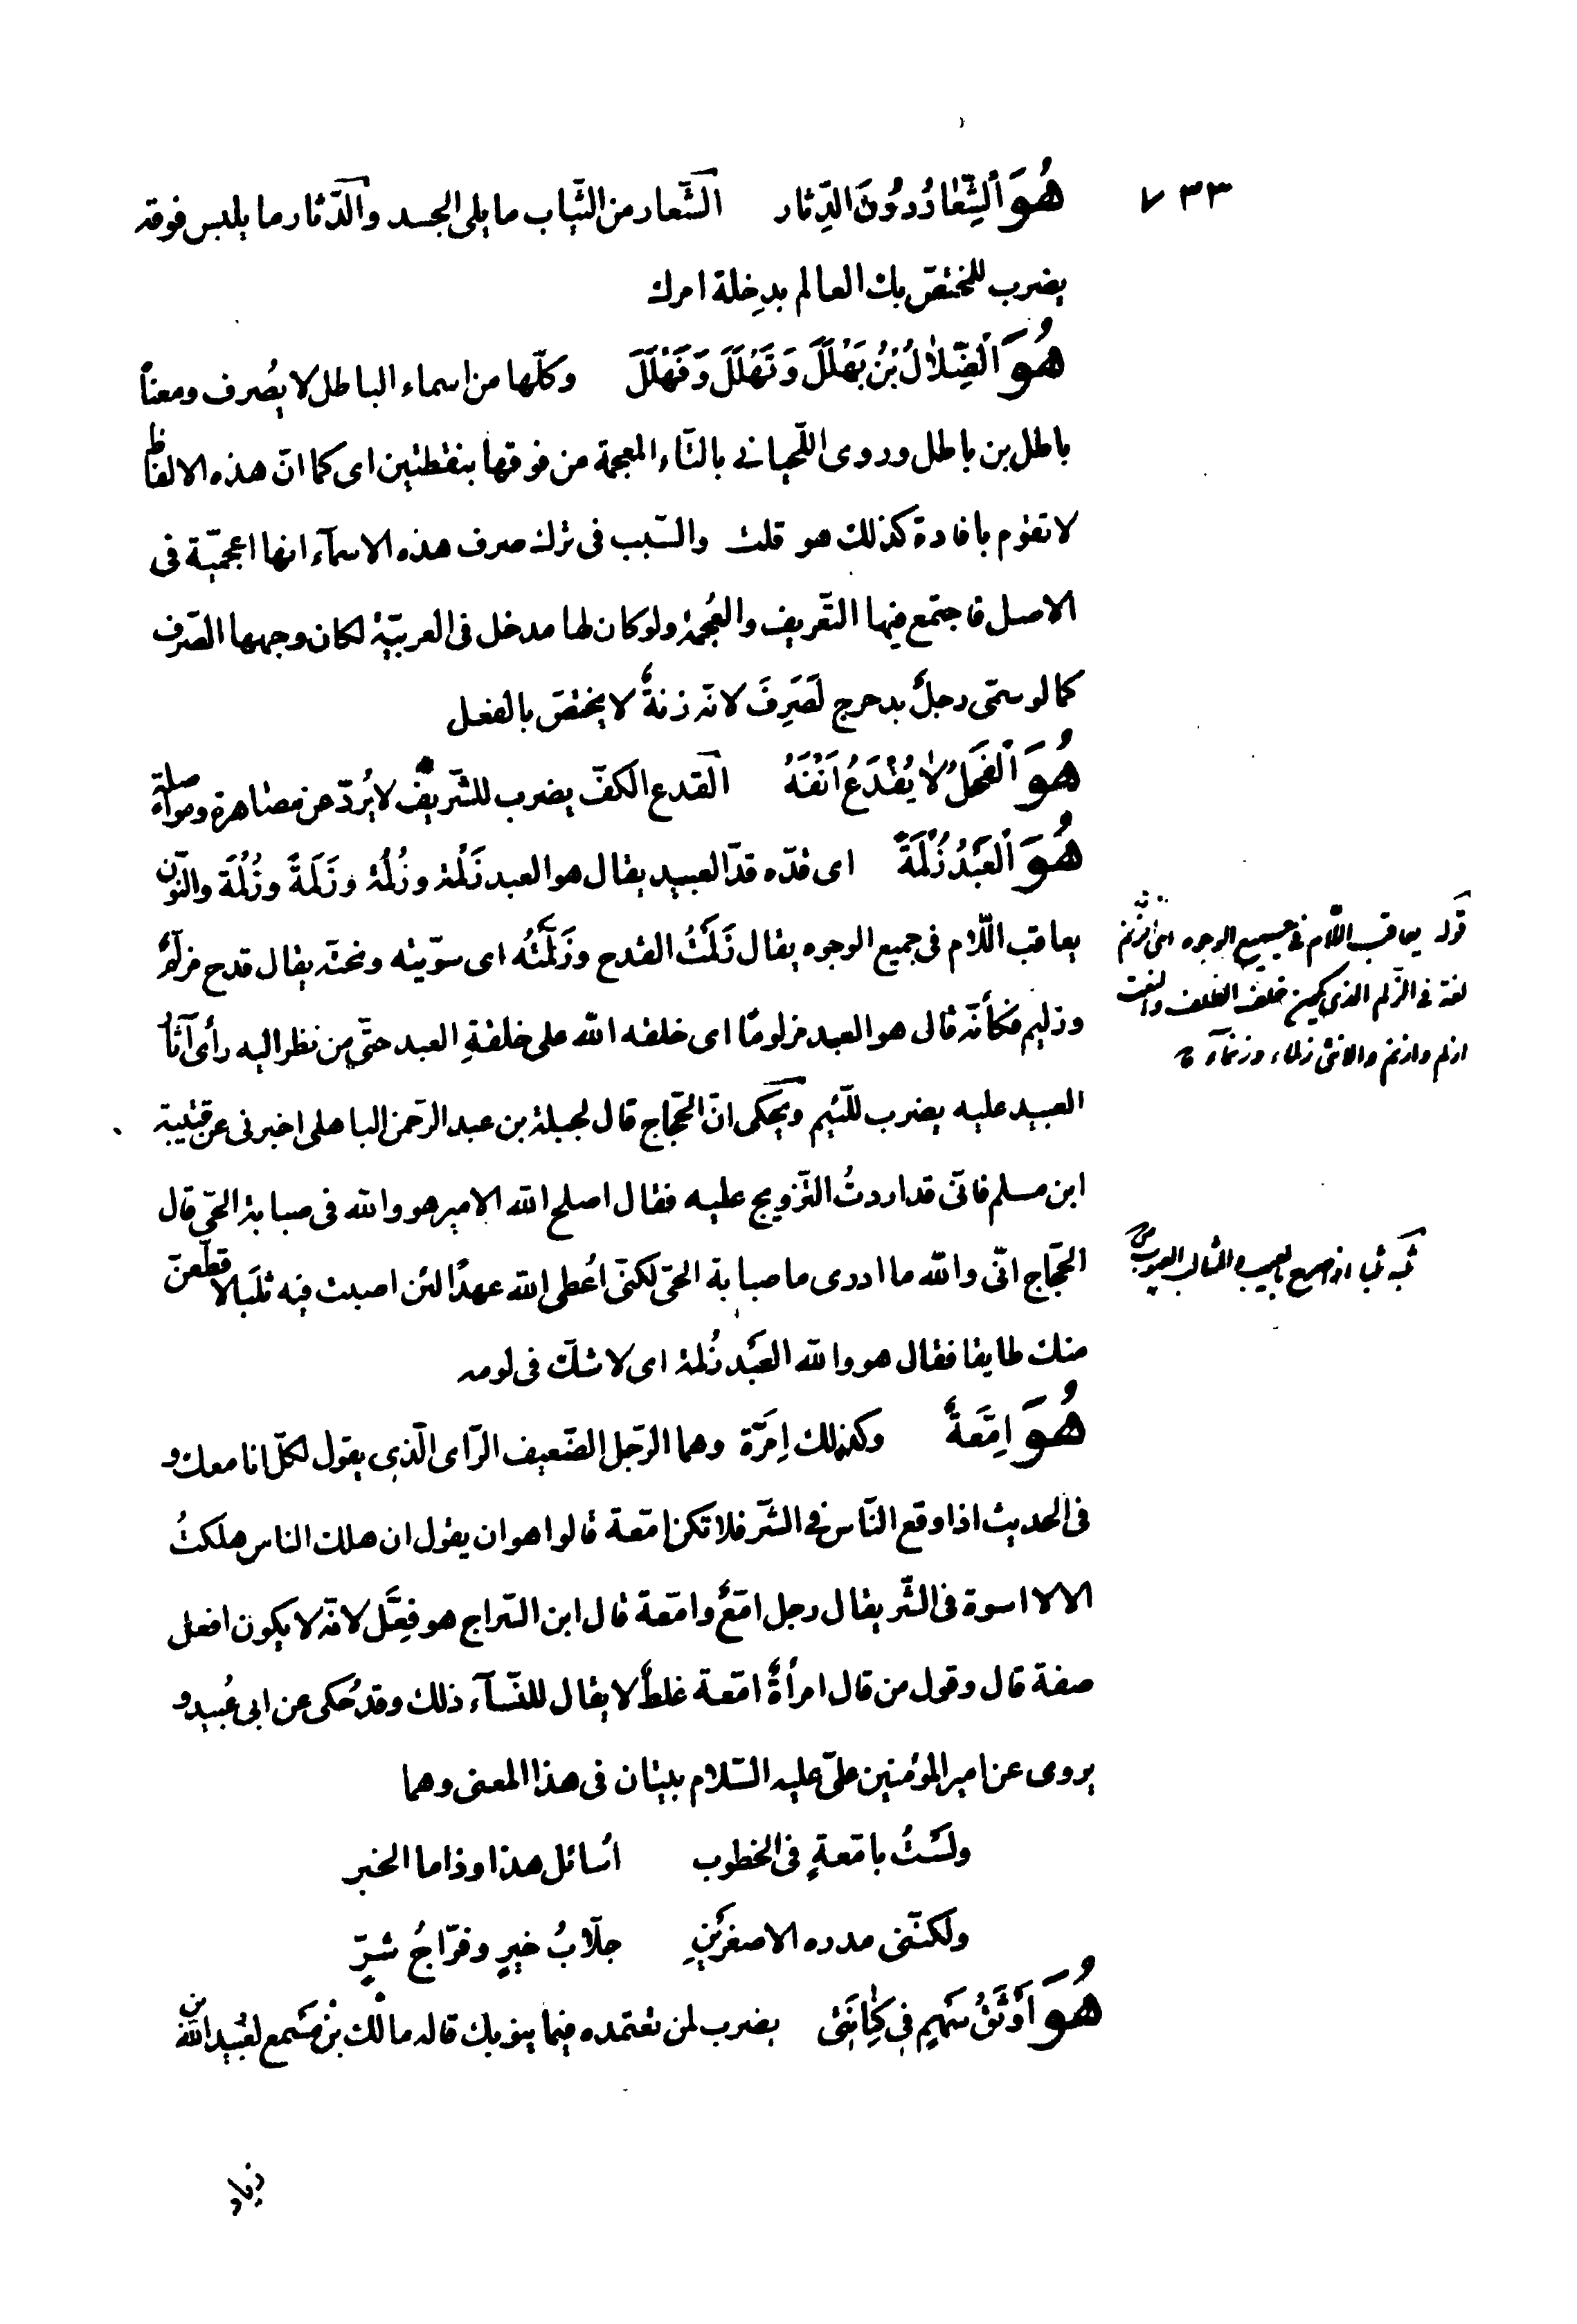 ٧٣٣
هُوَ ٱلشِّعَارُ دُونَ الدِّثار الشّعار من الثّياب ما يلى الجسد والدّثار ما يلبس فوقه
يضرب للمختصّ بك العالم بدِخلة امرك
هُوَ ٱلضَّلَالُ بْنُ بَهْلَلَ وَتَهْلَلَ وَفَهْلَلَ وكلّها من اسماء الباطل لا يصُرف ومعناُ
باطل بن باطل وروى اللّحيانى بالتّاء المعجمة من فوقها بنقطتين اى كما انّ هذه الالفاظ
لا تقوم بافادة كذلك هو قلت والسّبب فى ترك صرف هذه الاسمآء انها اعجميّة فى
الاصل فاجتمع فيها التّعريف والعُجمة ولو كان لها مدخل فى العربيّة لكان وجهها الصّرف
كما لو سمّى رجلٌ بدحرج لَصُرِفَ لانّه زنةٌ لا يختصّ بالفعل
هُوَ ٱلْفَحْلُ لَا يُقْدَعُ اَنْفُهُ القدع الكفّ يضرب للشّريف لا يُردّ عن مصاهرة ومواصلة
هُوَ ٱلْعَبْدُ زُلْمَةً اى قدّه قدّ العبيد يقال هو العبد زَلْمة وزُلْمة وزَلَمةً وزُلَمَةً والنّون
يعاقب اللّام فى جميع الوجوه يقال زَلَمْتُ القدح وزَلَّمْتُه اى سوّيته ونحتّه يقال قدح مزلّمٌ
وزليم فكأنّه قال هو العبد مزلومًا اى خلقه الله على خلقةِ العبد حتّى من نظر اليه رأى آثارَ
العبيد عليه يضرب للّئيم ويحكى انّ الحجّاج قال لجبلة بن عبد الرّحمن الباهلى اخبرنى عن قتيبة
ابن مسلم فانّى قد اردتُ التّزويج عليه فقال اصلح الله الامير هو والله فى صبابة الحىّ قال
الحجّاج انّى والله ما ادرى ما صبابة الحىّ لكنّى اُعطى الله عهدًا لئن اصبت فيه ثلَبا لاقطّعنّ
منك طابقا فقال هو والله العَبْد زُلمة اى لا شكّ فى لومه
هُوَ اِمَّعَةٌ وكذلك اِمَّرَة وهما الرّجل الضّعيف الرّاى الّذى يقول لكلّ انا معك و
فى الحديث اذا وقع النّاس فى الشّر فلا تكن امّعة قالوا هو ان يقول ان هلك الناس هلكتُ
الا لا اسوة فى الشّر يقال رجل امّعٌ وامّعة قال ابن السّراج هو فِعَّل لانّه لا يكون افعل
صفة قال وقول من قال امرأةٌ امّعة غلطٌ لا يقال للنّسآء ذلك وقد حُكى عن ابى عُبيد و
يروى عن امير المؤمنين علىّ عليه السّلام بيتان فى هذا المعنى وهما
ولَسْتُ بامّعةٍ فى الخطوب اُسائل هذا وذا ما الخبر
ولكنّنى مدره الاصغرَيْنِ جلّابُ خيرٍ وفرّاجُ شرٍّ
هُوَ اَوْثَقُ سَهْمٍ فِى كِنَانَتِى يضرب لمن تعتمده فيما ينوبك قاله مالك بن مسمع لعُبيد الله بن
زياد
قوله يعاقب اللّام فى جميع الوجوه
لغة فى الزّلم الذى يكون خلف الظلف والنعت
ازلم وازنم والانثى زلماء وزنمآء
ثلبه ثلبا اذا صرح بالعيب والمثالب العيوب